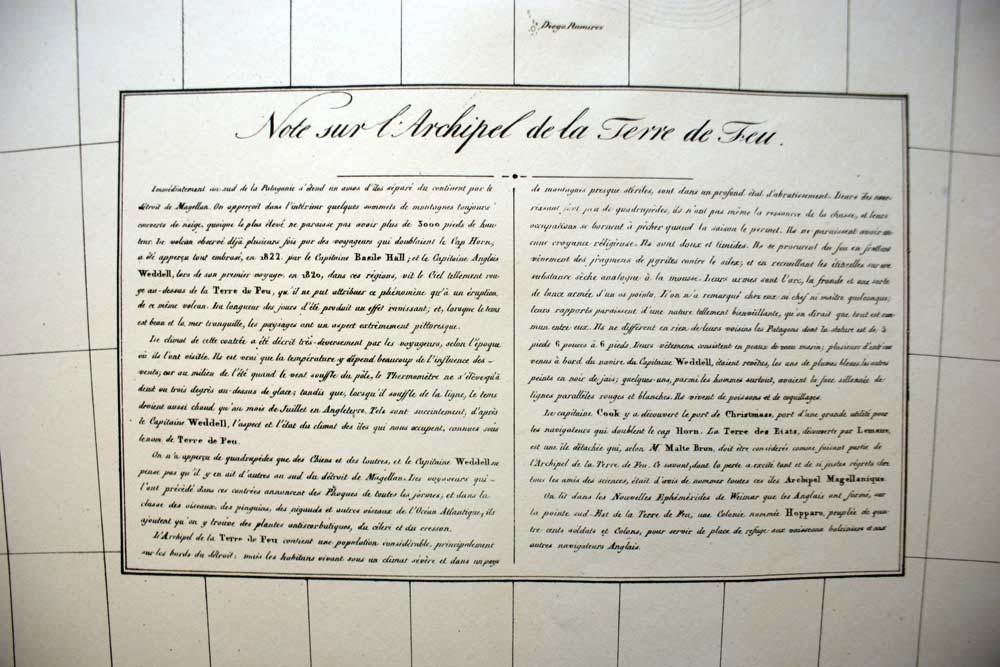 Diego Ramirez
Note sur l'Archipel de la Terre de Feu.
Immédiatement au sud de la Patagonie s'étend un amas d'îles séparé du continent par le
détroit de Magellan. On apperçoit dans l'intérieur quelques sommets de montagnes toujours
couverts de neige, quoique le plus élevé ne paraisse pas avoir plus de 3000 pieds de hau-
teur. Un volcan observé déjà plusieurs fois par des voyageurs qui doublaient le Cap Horn,
a été apperçu tout embrasé, en 1822. par le Capitaine Basile Hall; et le Capitaine Anglais
Weddell, lors de son premier voyage, en 1820, dans ces régions, vit le Ciel tellement rou-
ge au-dessus de la Terre de Feu, qu'il ne put attribuer ce phénomène qu'à un éruption
de ce même volcan. La longueur des jours d'été produit un effet ravissant; et, lorsque le tems
est beau et la mer tranquille, les paysages ont un aspect extrêmement pittoresque.
Le climat de cette contrée a été décrit très-diversement par les voyageurs, selon l'époque
où ils l'ont visitée. Ils est vrai que la température y dépend beaucoup de l'influence des
vents; car au milieu de l'été quand le vent souffle du pôle, le Thermomètre ne s'élève qu'à
deux ou trois degrés au-dessus de glace; tandis que, lorsqu'il souffle de la ligne, le tems
devient aussi chaud, qu'au mois de Juillet en Angleterre. Tels sont succintement, d'après
le Capitaine Weddell, l'aspect et l'état du climat des îles qui nous occupent, connues sous
le nom de Terre de Feu.
On n'a apperçu de quadrupèdes que des Chiens et des loutres, et le Capitaine Weddell ne
pense pas qu'il y en ait d'autres au sud du détroit de Magellan. Les voyageurs qui
l'ont précédé dans ces contrées annoncent des Phoques de toutes les formes; et dans la
classe des oiseaux, des pinguins, des nigauds et autres oiseaux de l'Océan Atlantique; ils
ajoutent qu'on y trouve des plantes antiscorbutiques, du céleri et du cresson.
L'Archipel de la Terre de Feu contient une population considérable, principalement
sur les bords du détroit; mais les habitans vivant sous un climat sévère et dans un pays
de montagnes presque stériles, sont dans un profond état d'abrutissement. Leurs îles nour-
rissant fort peu de quadrupèdes, ils n'ont pas même la ressource de la chasse, et leurs
occupations se bornent à pêcher quand la saison le permet. Ils ne paraissent avoir au-
cune croyance réligieuse. Ils sont doux et timides. Ils se procurent du feu en frottant
vivement des fragmens de pyrites contre le silex; et en recueillant les étincelles sur une
substance sèche analogue à la mousse. Leurs armes sont l'arc, la fronde et une sorte
de lance armée d'un os pointu. L'on n'a remarqué chez eux ni chef ni maître quelconque;
leurs rapports paraissent d'une nature tellement bienveillante, qu'on dirait que tout est com-
mun entre eux. Ils ne diffèrent en rien de leurs voisins les Patagons dont la stature est de 5
pieds 6 pouces à 6 pieds. Leurs vêtemens consistent en peaux de veau marin; plusieurs d'entr'eux
venus à bord du navire du Capitaine Weddell, étaient revêtus, les uns de plumes bleues les autres
peints en noir de jais; quelques-uns, parmi les hommes surtout, avaient la face sillonnée de
lignes parallèles rouges et blanches. Ils vivent de poissons et de coquillages.
Le capitaine Cook y a découvert le port de Christmass, port d'une grande utilité pour
les navigateurs qui doublent le cap Horn. La Terre des Etats, découverte par Lemaire,
est une île détachée qui, selon M. Malte Brun, doit être considérée comme faisant partie de
l'Archipel de la Terre de Feu. Ce savant, dont la perte a excité tant et de si justes régrets chez
tous les amis des sciences, était d'avis de nommer toutes ces îles Archipel Magellanique.
On lit dans les Nouvelles Ephémérides de Weimar que les Anglais ont formé, sur
la pointe sud-Est de la Terre de Feu, une Colonie nommée Hopparo, peuplée de qua-
tre cents soldats et Colons, pour servir de place de refuge aux vaisseaux baleiniers et aux
autres navigateurs Anglais.